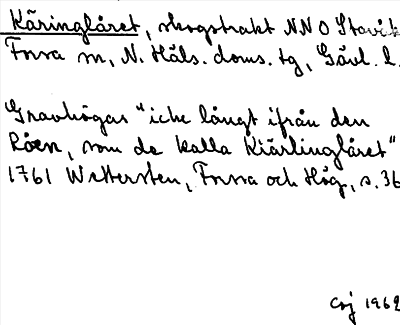 Käringlåret, skogstrakt NNO Stavik
Forsa sn, N. Häls. doms. tg, Gävl. l.
Gravhögar "icke långt ifrån den
Råen, som de kalla Kiärlinglåret"
1761 Wettersten, Forssa och Hög, s. 36
Coj 1962